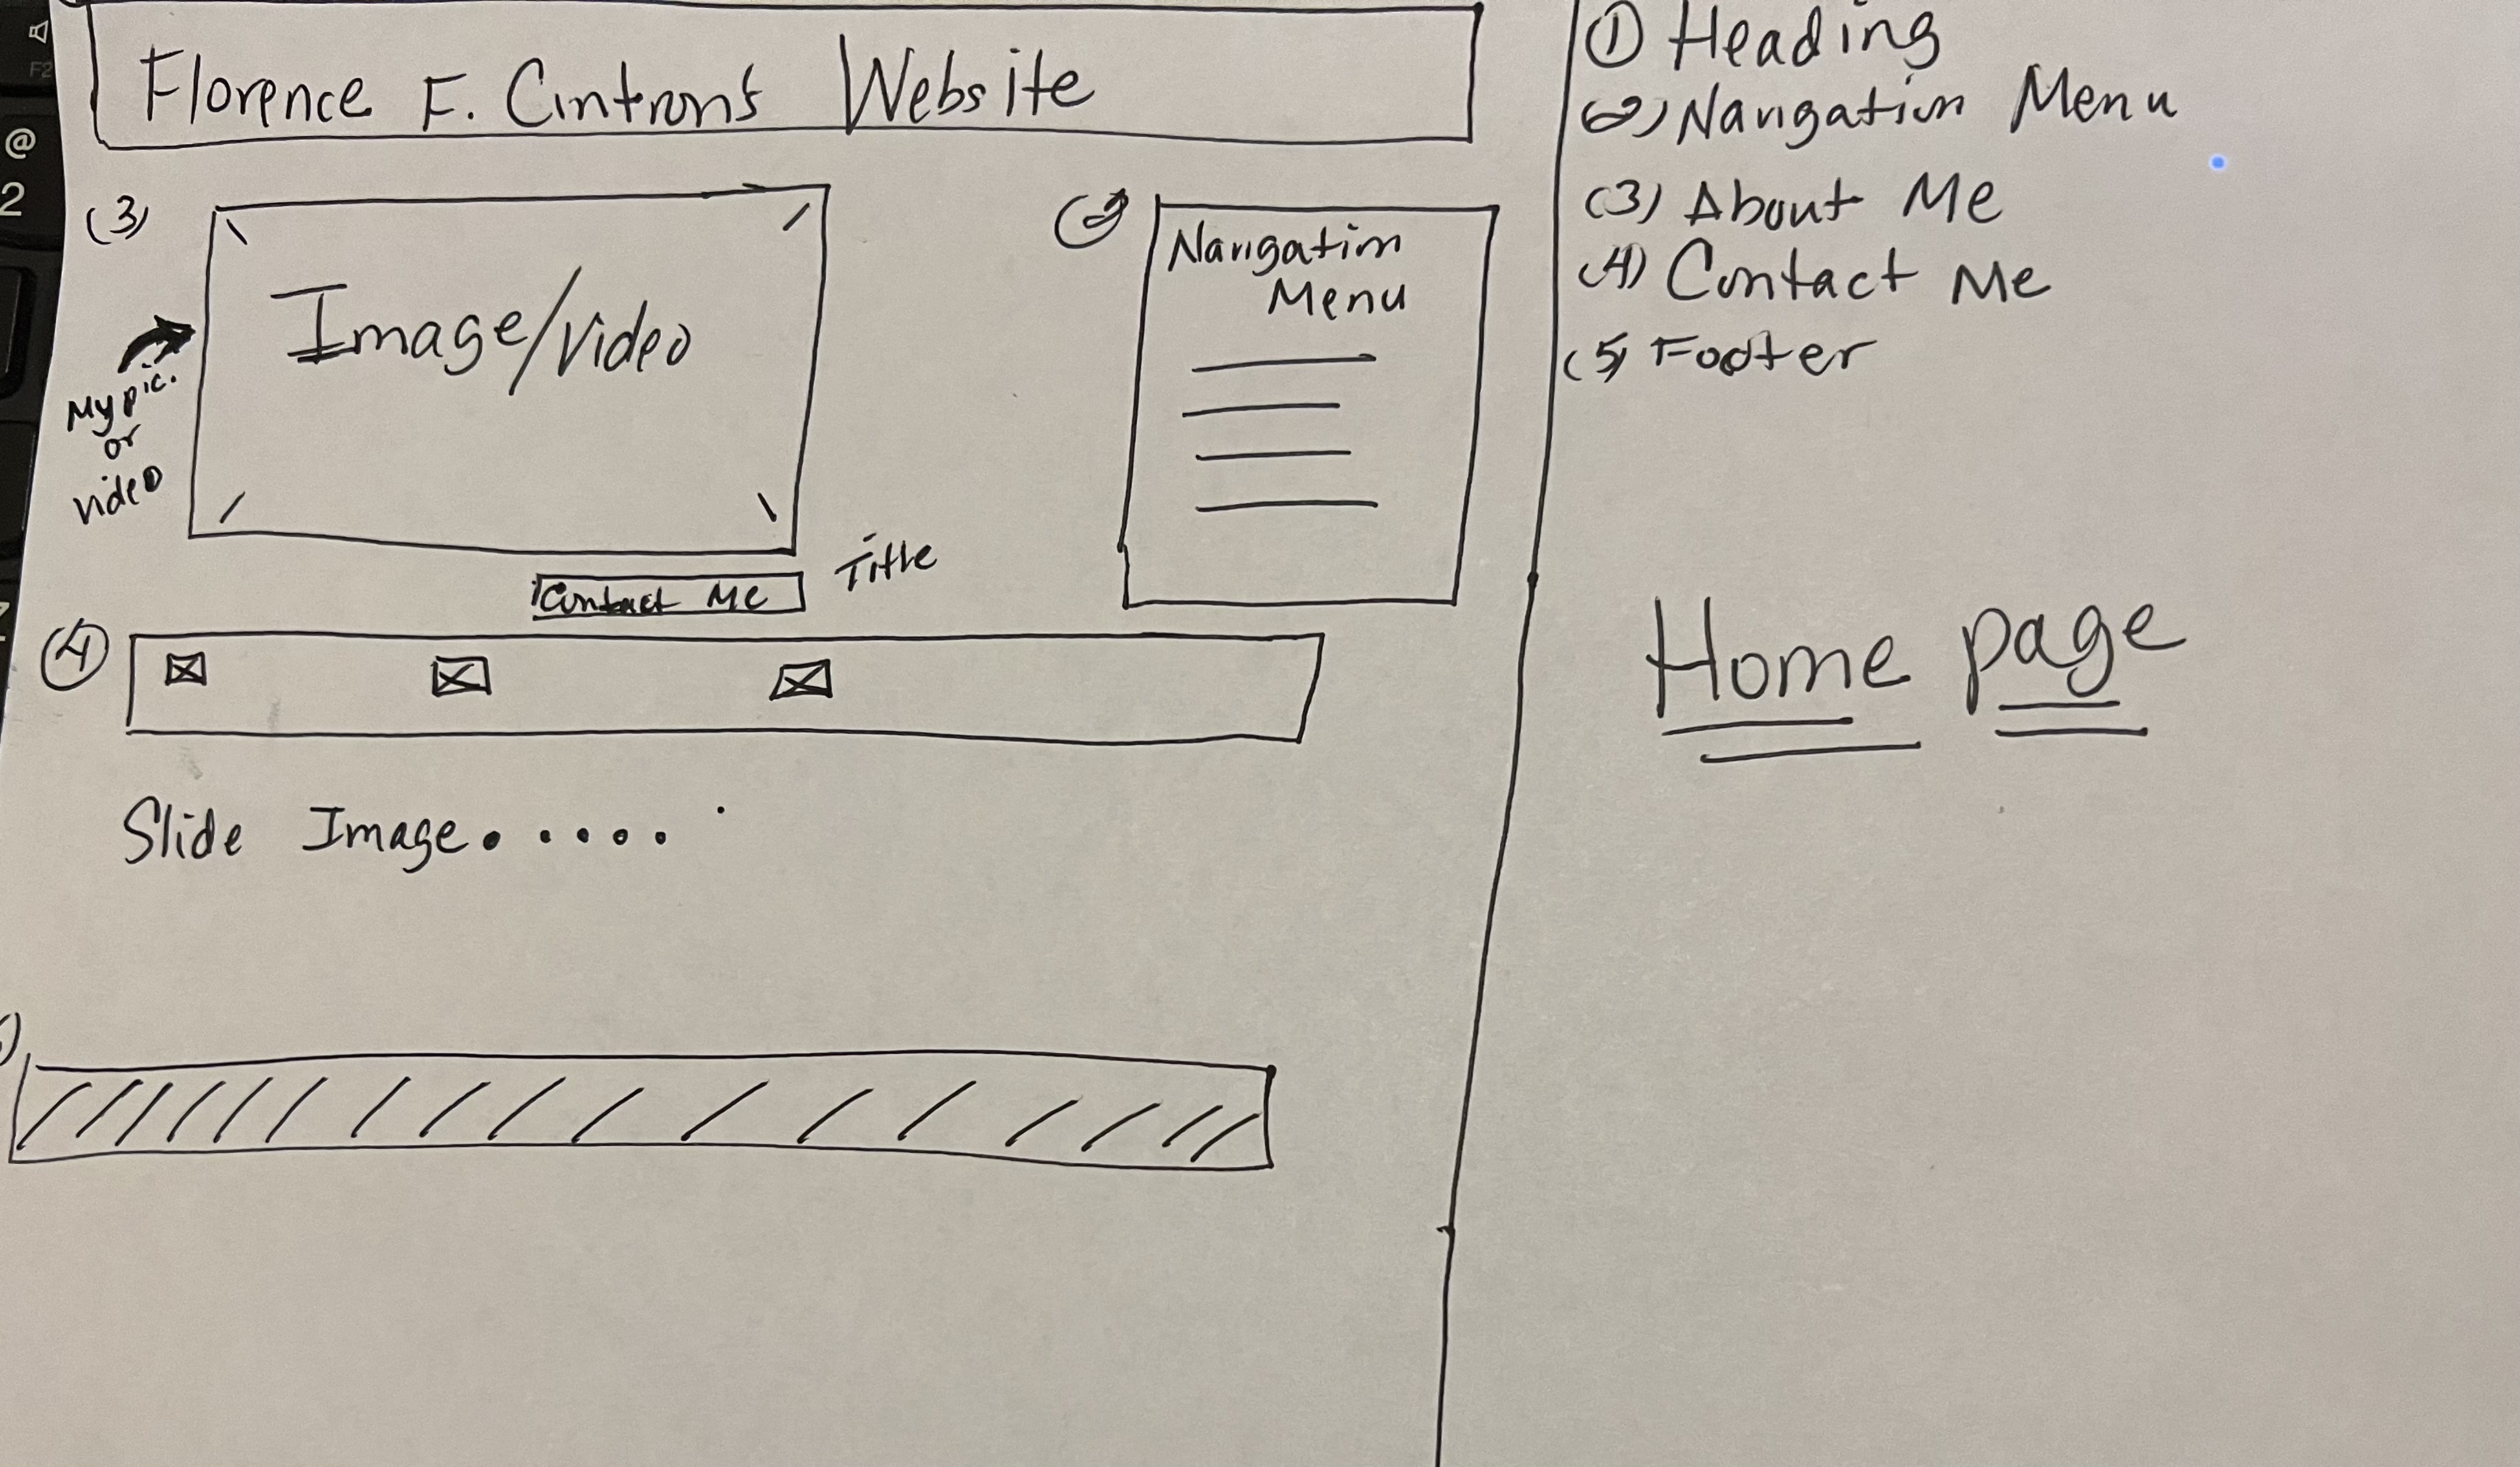 Florence F. Cintron's Website
(3)
Image/Video
My pic.
or
video
Navigation
Menu
Contact Me
Title
(4)
Slide Image......
① Heading
(2) Navigation Menu
(3) About Me
(4) Contact Me
(5) Footer
Home page
F2
@
2